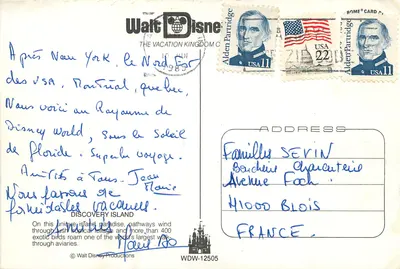 Walt Disne
THE VACATION KINGDOM O
Alden Partridge
USA 11
USA
22
Alden Partridge
USA 11
Après New York, le Nord Est
des USA. Montréal, Québec,
Nous voici au Royaume de
Disney World, sous le soleil
de Floride. Superbe voyage.
Amitiés à Tous. Jean
Marie
Nous passons de
formidables vacances
Amitiés
ADDRESS
Familles SEVIN
Boucherie Charcuterie
Avenue Foch
41000 BLOIS
FRANCE
DISCOVERY ISLAND
On this island paradise, pathways wind
through and more than 400
exotic birds roam one of the world's largest walk-
through aviaries.
© Walt Disney Productions
WDW-12505